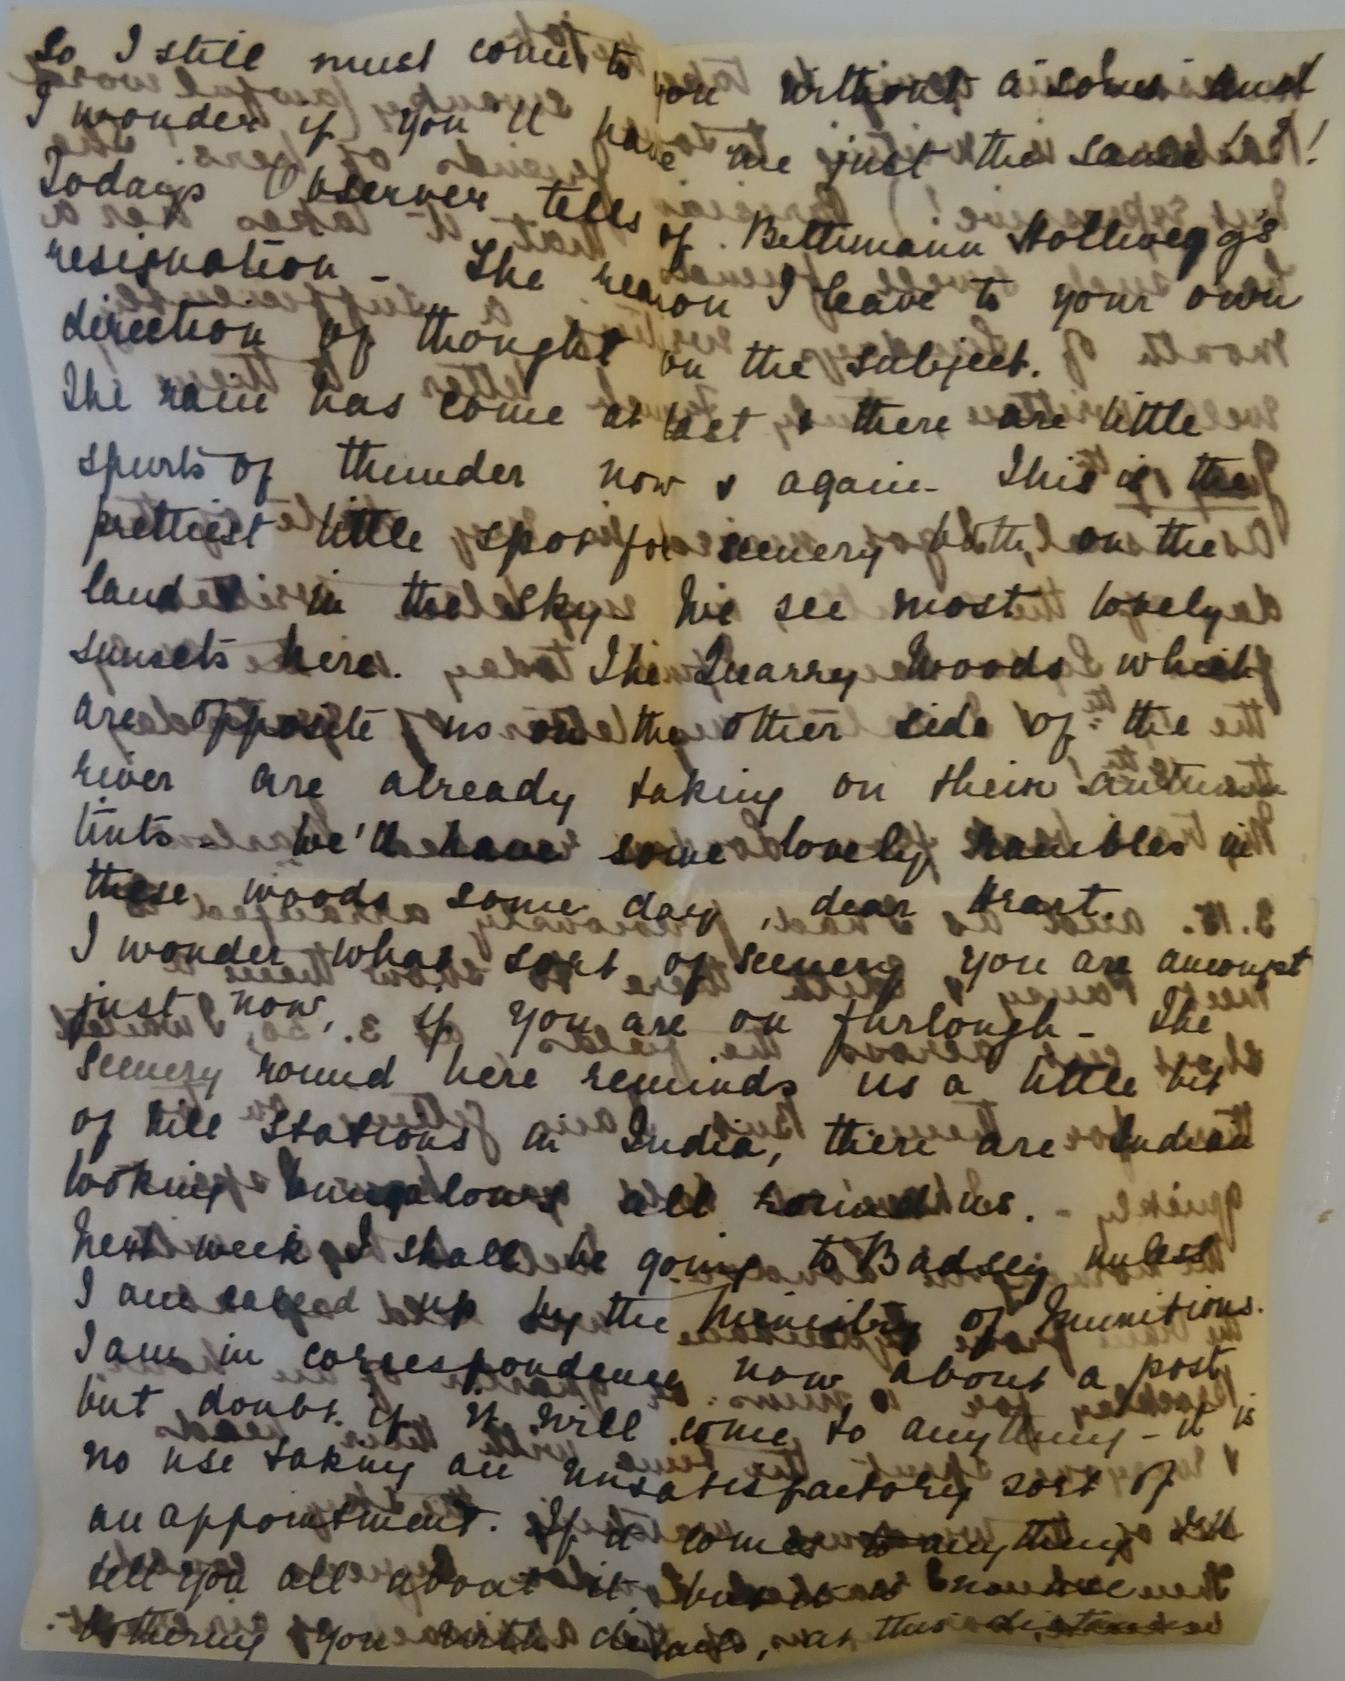 So I still must come to you without a sou and
I wonder if you'll have me just the same!?!
Todays Observer tells of Bethmann Hollwegg's
resignation - The reason I leave to your own
direction of thought on the subject.
The rain has come at last & there are little
spurts of thunder now & again - This is the
prettiest little spot for scenery both, on the
land & in the sky. We see most lovely
sunsets here. The Quarry Woods which
are opposite us on the other side of the
river are already taking on their autumn
tints - We'll have some lovely rambles in
these woods some day, dear Heart.
I wonder what sort of scenery you are amongst
just now, if you are on furlough - The
scenery round here reminds us a little bit
of hill stations in India, there are Indian
looking bungalows all round us. -
Next week I shall be going to Badsey unless
I am called up by the Ministry of Munitions.
I am in correspondence now about a post
but doubt if it will come to anything - it is
no use taking an unsatisfactory sort of
an appointment. If it comes to anything I'll
tell you all about it, but it is no use
bothering you with details, at this distance